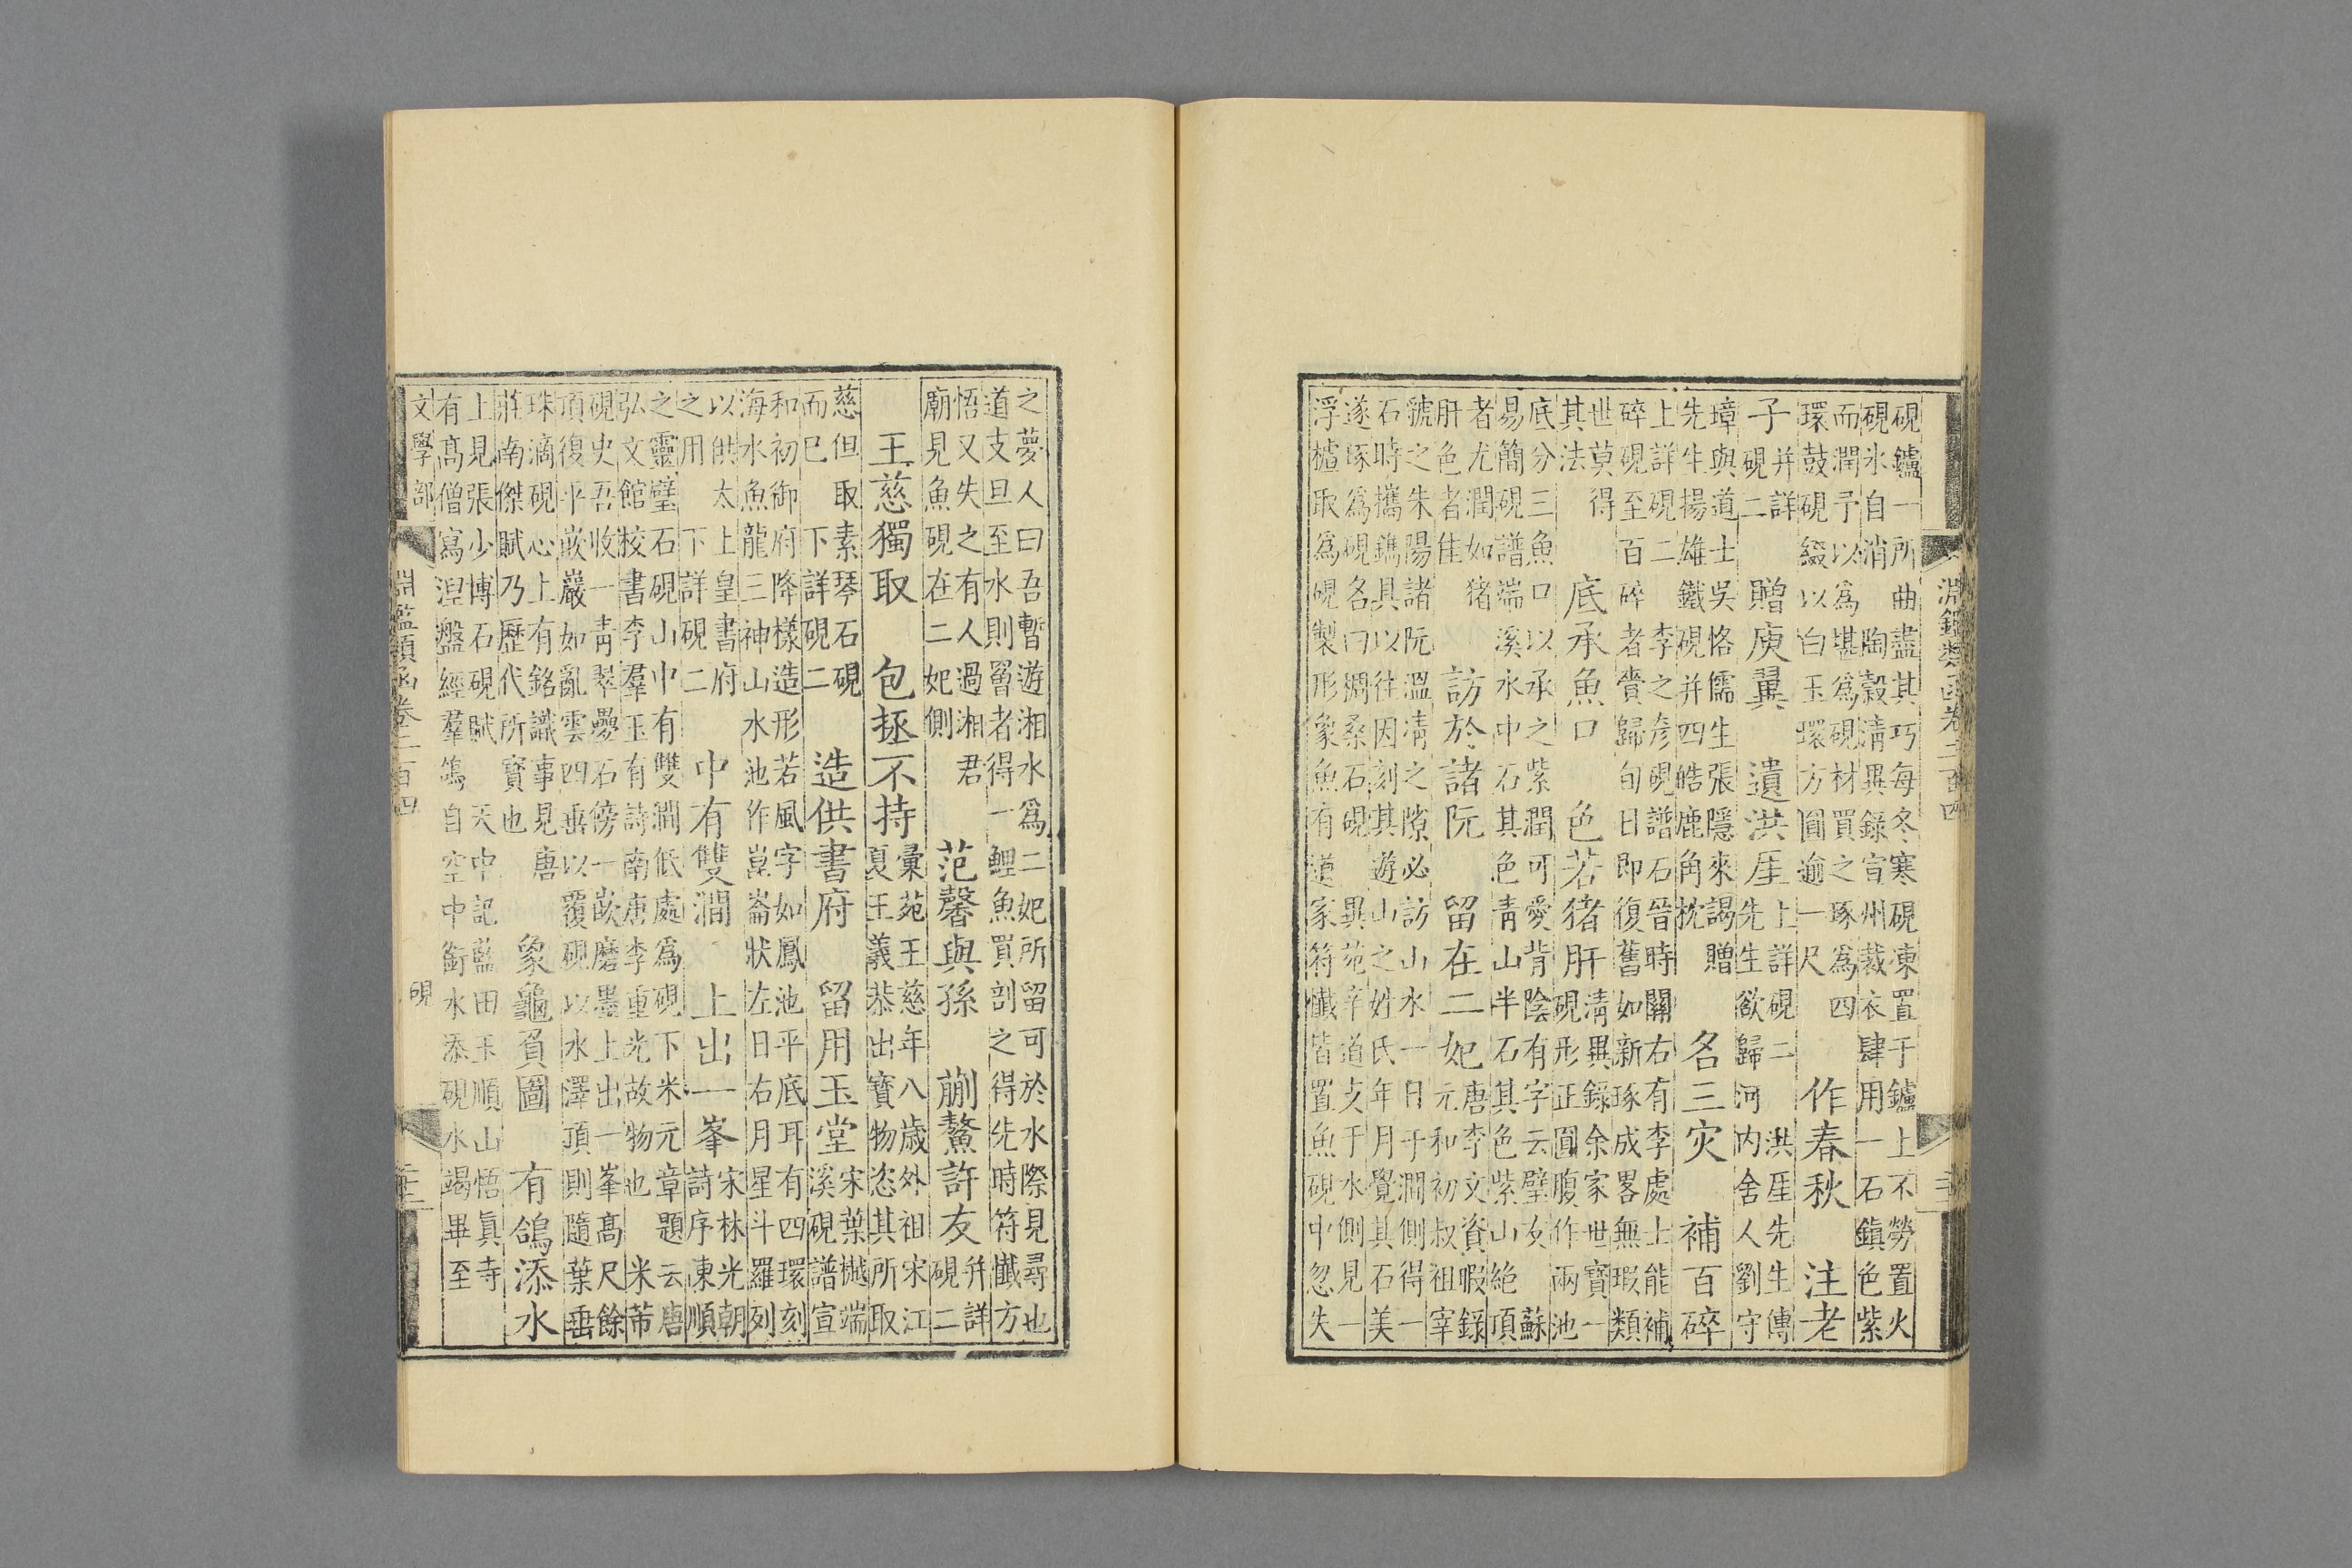 淵鑑類函卷二百四
硯鑪一所曲盡其巧每冬寒硯凍置于鑪上不勞置火
硯氷自消 陶穀淸異錄宣州裁衣肆用一石鎮色紫
而潤予以爲堪爲硯材買之琢爲四
環鼓硯綴以白玉環方圓逾一尺
作春秋 注老
子
并詳
硯二
贈庾翼 遺洪厓
上詳硯二 洪厓先生傳
先生欲歸河内舍人劉守
璋與道士吳恪儒生張隱來謁贈
先生揚雄鐵硯并四皓鹿角枕
名三灾 補百碎
上詳硯二 李之彦硯譜石晉時關右有李處士能補
碎硯至百碎者賫歸旬日即復舊如新琢成畧無瑕類
世莫得
其法
底承魚口 色若猪肝
淸異錄余家世寶一
硯形正圓腹作兩池
底分三魚口以承之紫潤可愛背陰有字云璧友 蘇
易簡硯譜端溪水中石其色青山半石其色紫山絶頂
者尤潤如猪
肝色者佳
訪於諸阮 留在二妃
唐李文資暇錄
元和初叔祖宰
虢之朱陽諸阮溫凊之隙必訪山水一日于澗側得一
石時攜鐫具以往因刻其遊山之姓氏年月覺其石美
遂琢爲硯各曰稠桑石硯 異苑辛道支于水側見一
浮楂取爲硯製形象魚有道家符懴皆置魚硯中忽失
之夢人曰吾暫遊湘水爲二妃所留可於水際見尋也
道支旦至水則罾者得一鯉魚買剖之得先時符懴方
悟又失之有人過湘君
廟見魚硯在二妃側
范馨與孫 蒯鰲許友
并詳
硯二
王慈獨取 包拯不持
彙苑王慈年八歲外祖宋江
夏王義恭出寶物恣其所取
慈但取素琴石硯
而已 下詳硯二
造供書府 留用玉堂
宋葉樾端
溪硯譜宣
和初御府降樣造形若風字如鳳池平底耳有四環刻
海水魚龍三神山水池作崑崙狀左日右月星斗羅列
以供太上皇書府
之用 下詳硯二
中有雙澗 上出一峯
宋林光朝
詩序東順
之靈璧石硯山中有雙澗低處爲硯下米元章題云唐
弘文館校書李羣玉有詩南唐李重光故物也 米芾
硯史吾收一青翠疊石傍一嵌磨墨上出一峯高尺餘
頂復平嵌巖如亂雲四垂以覆硯以水澤頂則隨葉垂
珠滴硯心上有銘識事見唐
莊南傑賦乃歷代所寳也
象龜負圖 有鴿添水
上見張少博石硯賦 天中記藍田玉順山悟眞寺
有高僧寫湼盤經羣鴿自空中銜水添硯水竭畢至
文學部 淵鑑類函卷二百四 硯